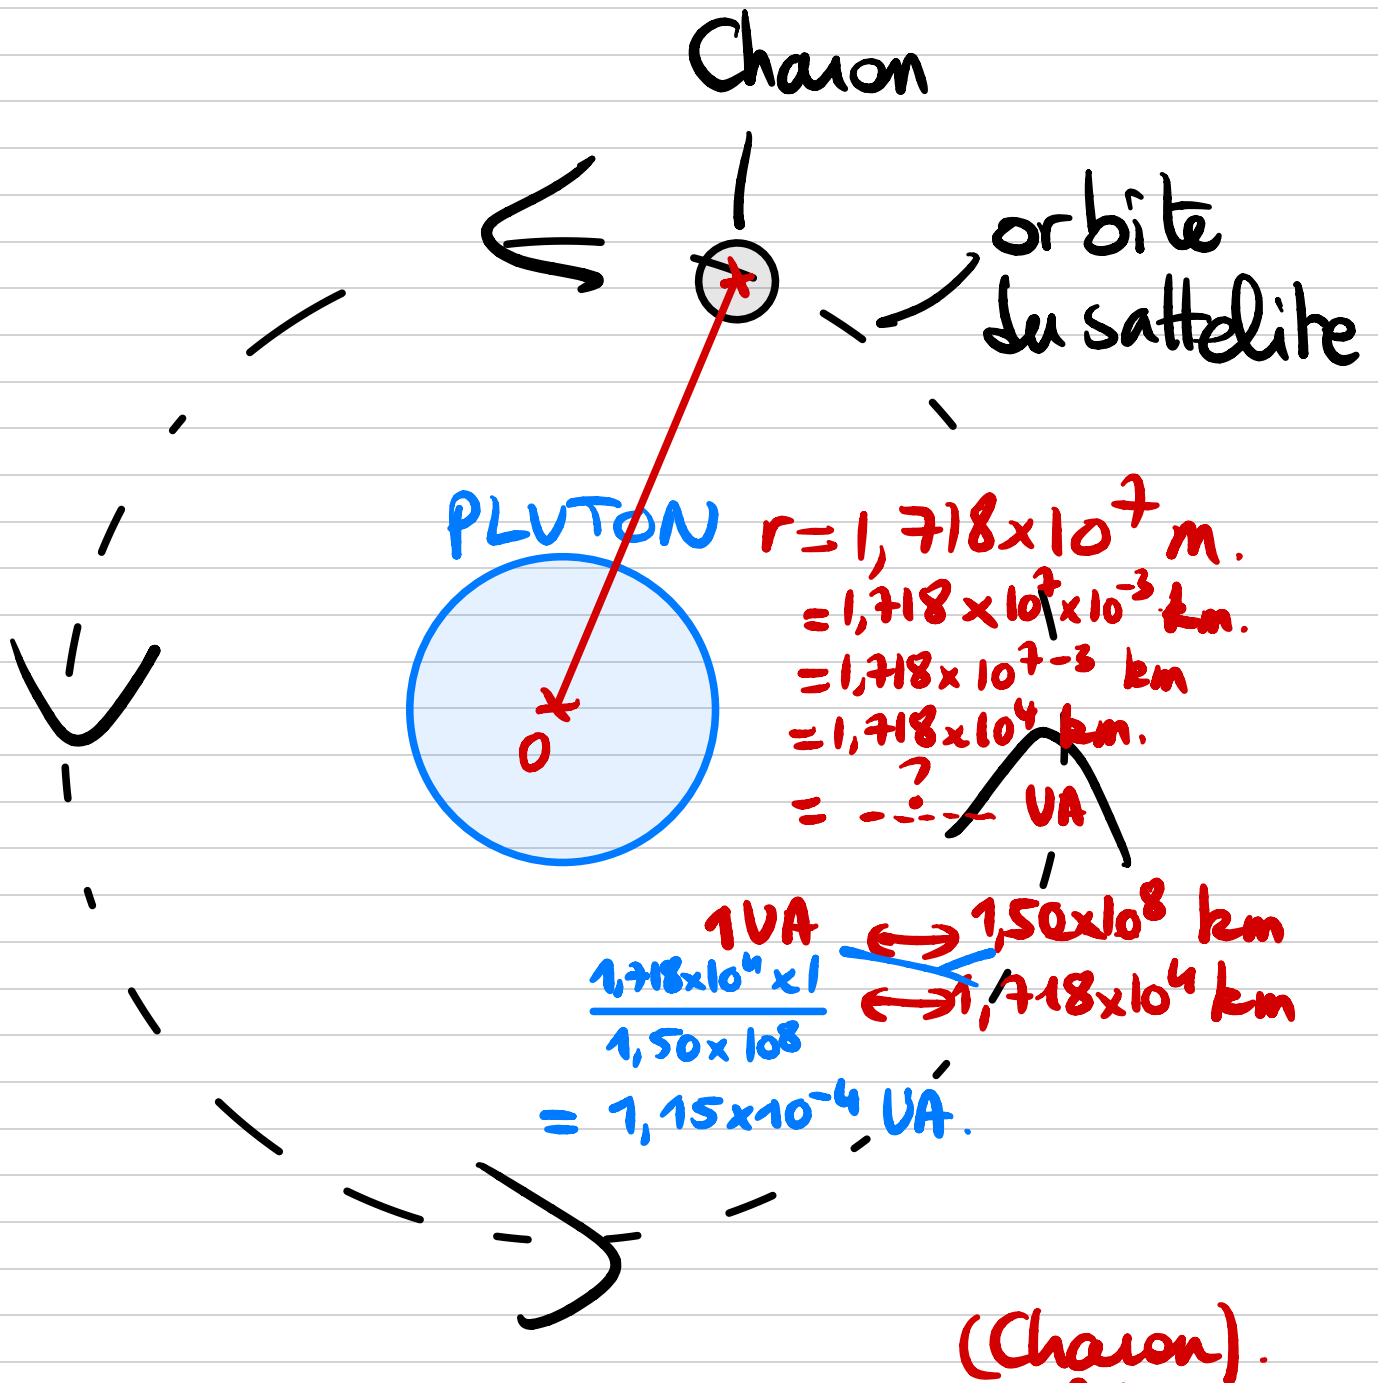 Charon
orbite
du sattelite
PLUTON
r = 1,718 × 10⁷ m.
= 1,718 × 10⁷ × 10⁻³ km.
= 1,718 × 10⁷⁻³ km
= 1,718 × 10⁴ km.
= - - ? - - - UA
O
1 UA ↔ 1,50 × 10⁸ km
1,718 × 10⁴ × 1 ↔ 1,718 × 10⁴ km
1,50 × 10⁸
= 1,15 × 10⁻⁴ UA.
(Charon).